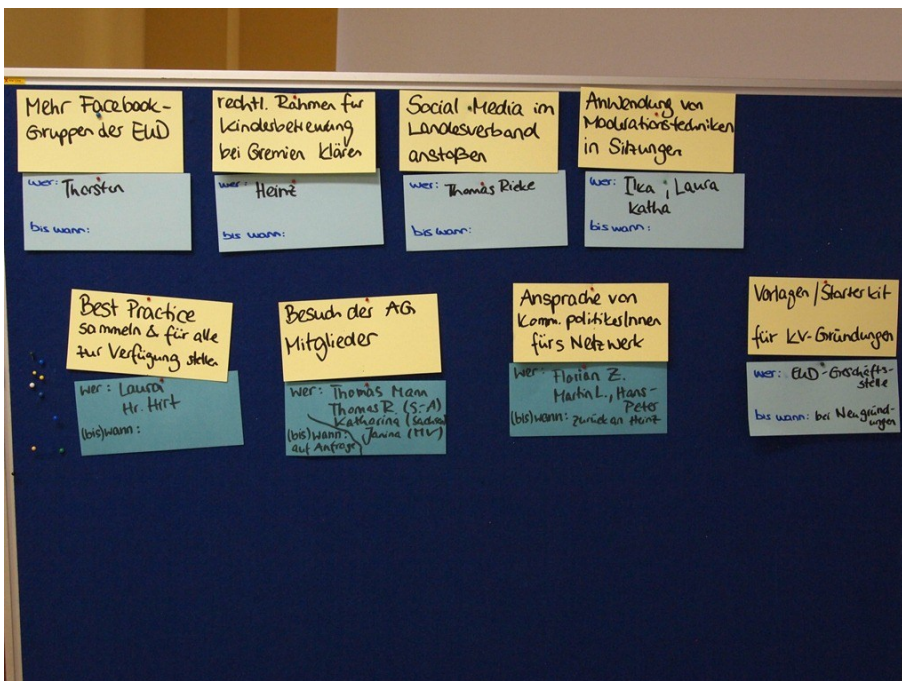 Mehr Facebook-
Gruppen der EUD
wer: Thorsten
bis wann:
rechtl. Rahmen für
Kinderbetreuung
bei Gremien klären
wer: Heinz
bis wann:
Social Media im
Landesverband
anstoßen
wer: Thomas Rieke
bis wann:
Anwendung von
Moderationstechniken
in Sitzungen
wer: Ilka, Laura
Katha
bis wann:
Best Practice
sammeln & für alle
zur Verfügung stellen
wer: Laura
Hr. Hirt
(bis)wann:
Besuch der AG
Mitglieder
wer: Thomas Mann
Thomas R. (S.-A)
Katharina (Sachsen)
(bis)wann: Janina (MV)
auf Anfrage
Ansprache von
Komm.politikerInnen
fürs Netzwerk
wer: Florian Z.
Martin L., Hans-
Peter
(bis)wann: zurück an Heinz
Vorlagen/Starterkit
für KV-Gründungen
wer: EUD-Geschäfts-
stelle
bis wann: bei Neugründ-
ungen